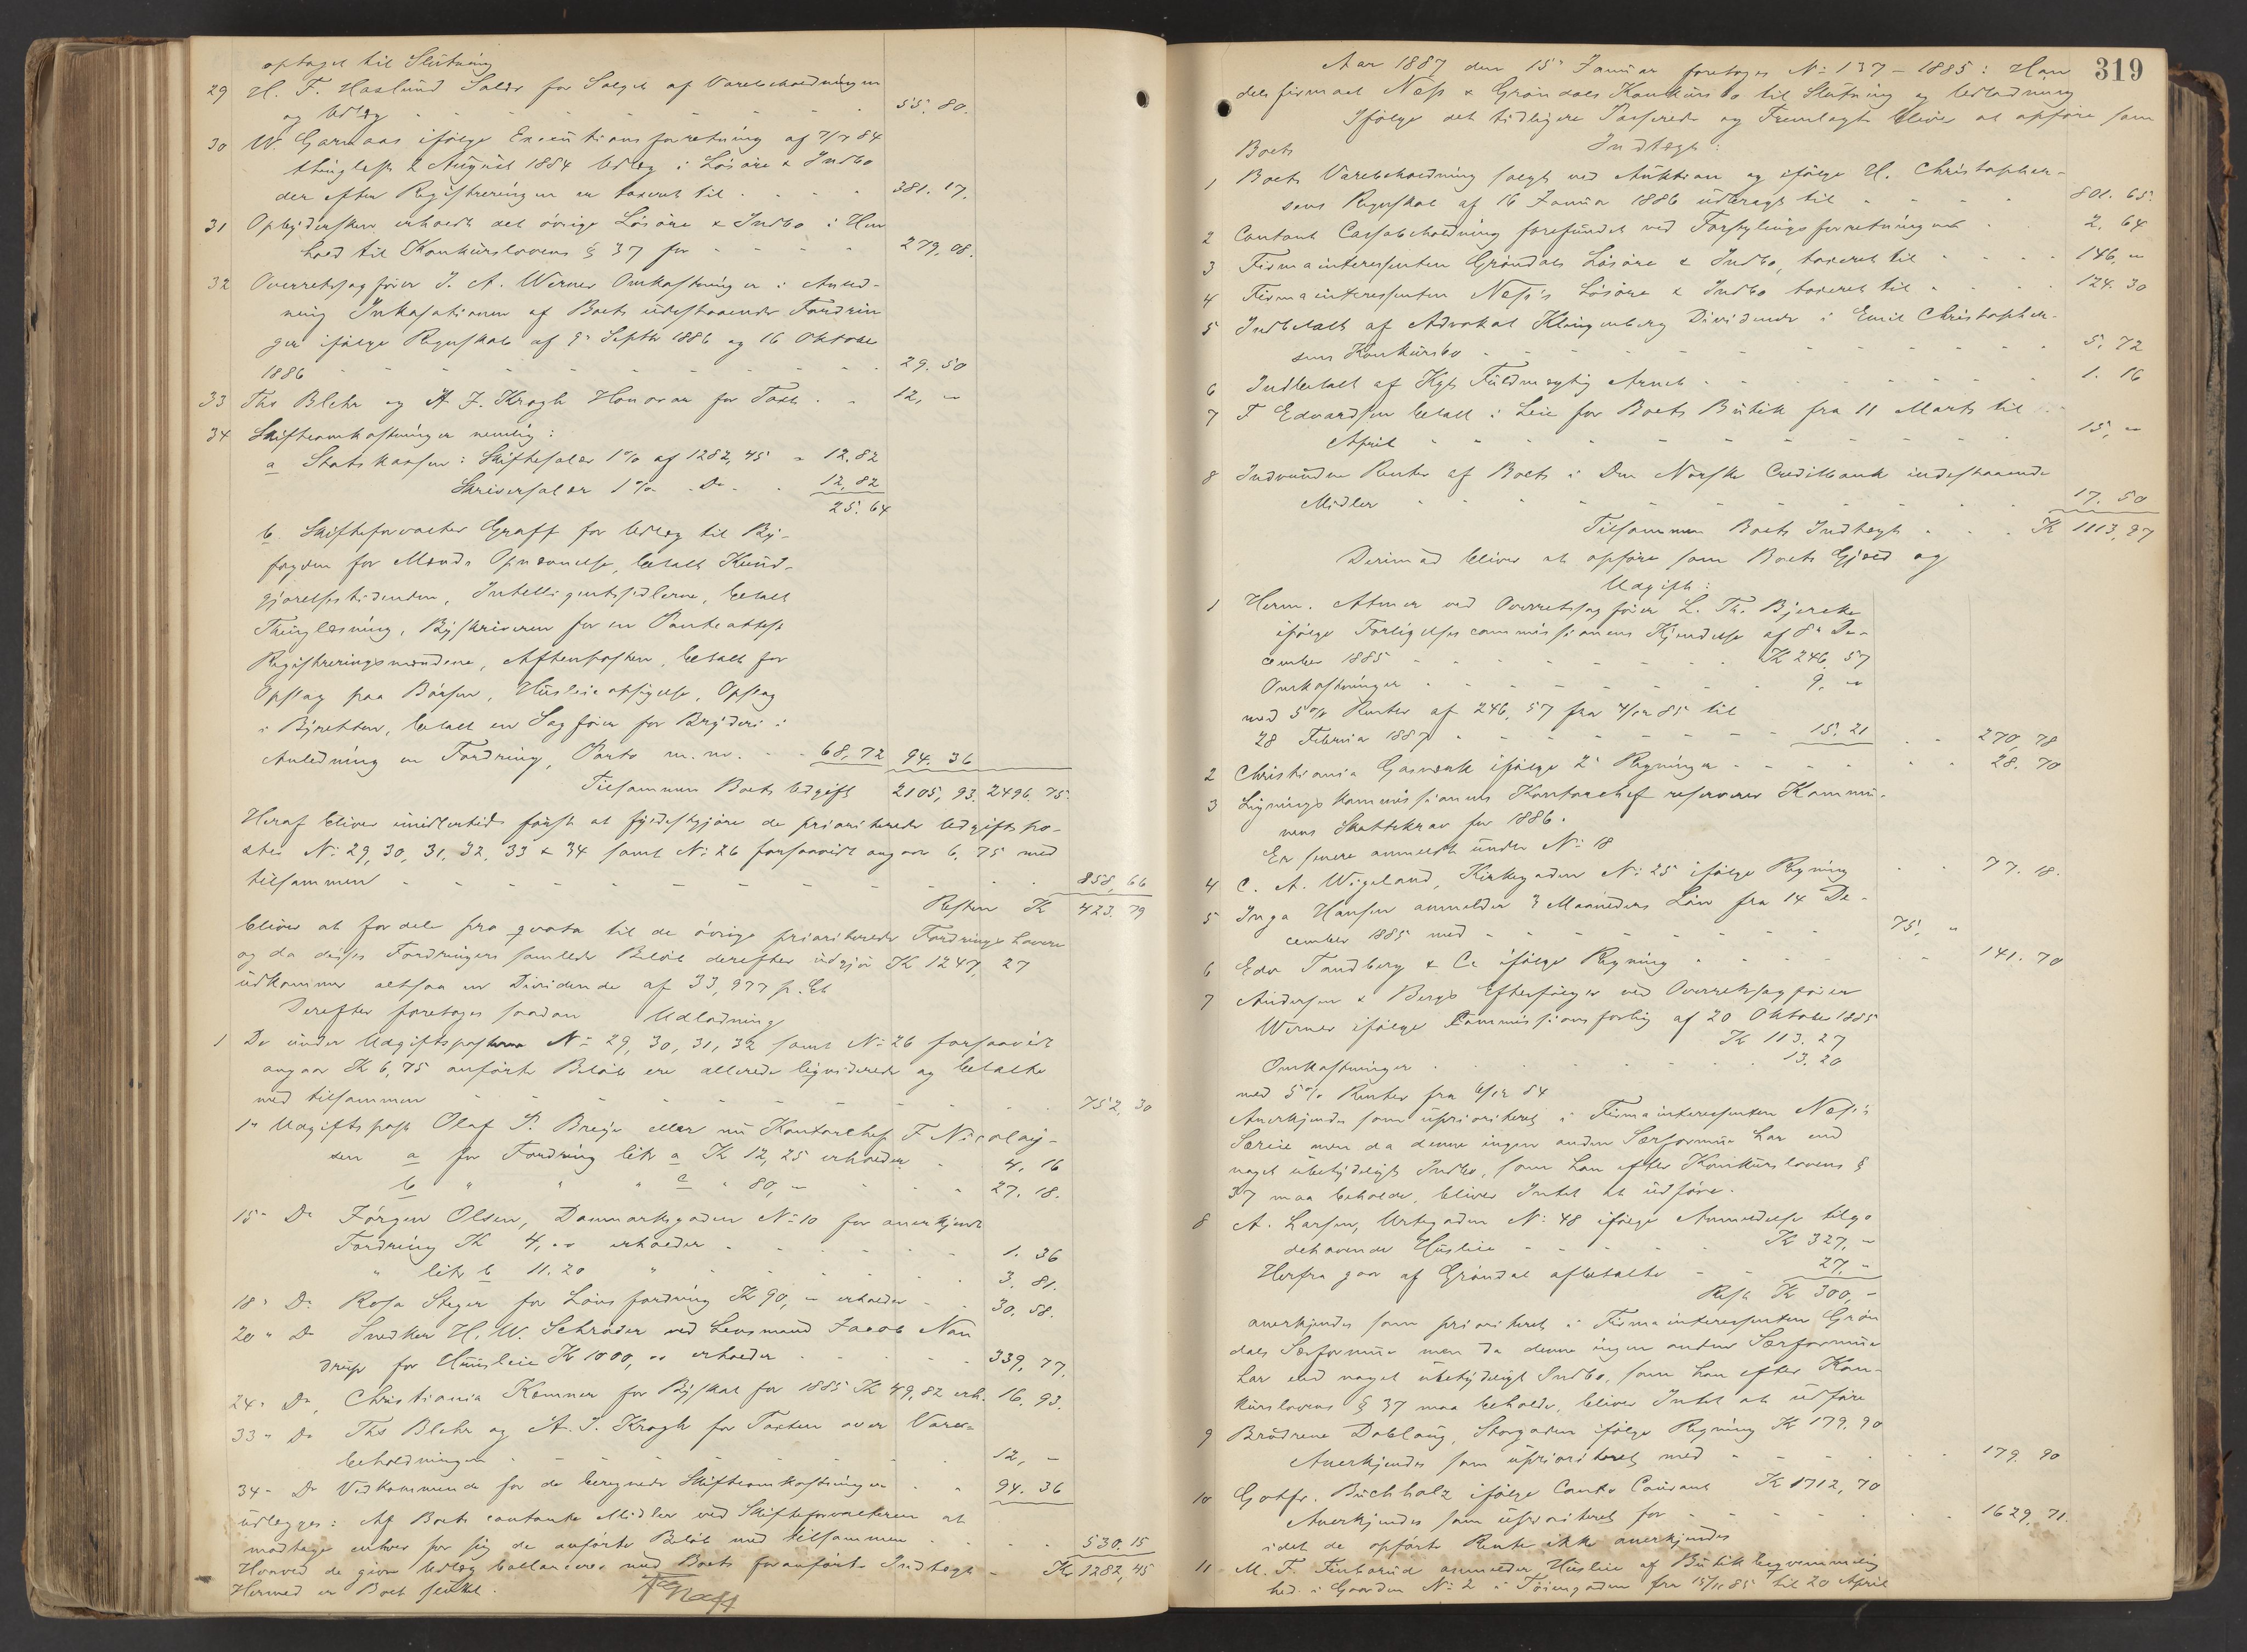 optaget til Slutning
29 H. F. Haslund Salær for Salget af Varebeholdningen
og Udlæg - - - - - 55. 80.
30 W. Garmaas ifølge Executionsforretning af 7/7 84
thinglæst 2 August 1884 Udlæg i Løsøre & Indbo
der efter Registreringen er taxeret til - - - 381. 17.
31 Opbydersken erholdt det øvrige Løsøre & Indbo i Hen
hold til Konkurslovens § 37 for - - - - 279. 08.
32 Overretssagfører J. A. Werner Omkostninger i Anled-
ning Inkasationen af Boets udestaaende Fordrin
ger ifølge Regnskab af 9de Septbr 1886 og 16 Oktober
1886 - - - - - - 29. 50
33 Ths Blehr og A. J. Kragh Honorar for Taxt - - 12, "
34 Skifteomkostninger nemlig:
a Statskassen: Skiftesalær 1% af 1282, 45 = 12. 82
Skriversalær 1% - Do - 12, 82
25. 64
b. Skifteforvalter Graff for Udlæg til By-
fogden for Mænds Opnævnelse, betalt Kund-
gjørelsestidenden, Intelligentssedlerne, betalt
Thinglæsning, Byskriveren for en Panteattest
Registreringsmændene, Aftenposten, betalt for
Opslag paa Børsen, Husleieopsigelse, Opslag
i Byretten, betalt en Sagfører for Bryderi i
Anledning en Fordring, Porto m. m. - - 68, 72 94. 36
Tilsammen Boets Udgift 2105, 93. 2496. 75.
Heraf bliver imidlertid først at fyldestgjøre de prioriterede Udgiftspo-
ster No 29, 30, 31, 32, 33 & 34 samt No 26 forsaavidt angaar 6, 75 med
tilsammen - - - - - - 858, 66
Resten Kr 423. 79
bliver at fordele pro qvota til de øvrige prioriterede Fordringshavere
og da disses Fordringers samlede Beløb derefter udgjør Kr 1247, 27
udkommer altsaa en Dividende af 33, 977 p. Ct
Derefter foretoges saadan Udlodning
1 De under Udgiftsposterne No 29, 30, 31, 32 samt No 26 forsaavidt
angaar Kr 6, 75 anførte Beløb ere allerede liqviderede og betalte
med tilsammen - - - - - 752. 30
1ste Udgiftspost Olaf P. Breye eller nu Kontorchef F Nicolay-
sen a for Fordring litr a Kr 12, 25 erholder - 4. 16
b " " " c " 80, - - - 27. 18.
15de Do Jørgen Olsen, Danmarksgaden No 10 for anerkjendt
Fordring Kr 4, " erholder - - - 1. 36
" litr b 11. 20 " - - - 3. 81.
18de Do Rosa Steger for Lønsfordring Kr 90, - erholder - 30. 58.
20de Do Snedker H. W. Schrøder ved Lensmand Jacob Nan
drup for Husleie Kr 1000, " erholder - - - 339, 77.
24de Do Christiania Kemner for Byskat for 1885 Kr 49, 82 erh. 16. 93.
33de Do Ths Blehr og A. J. Kragh for Taxten over Vare-
beholdningen - - - - - 12, -
34de Do Vedkommende for de beregnede Skifteomkostninger - - 94. 36
udlægges: Af Boets contante Midler ved Skifteforvalteren at
modtage enhver for sig de anførte Beløb med tilsammen - - - 530. 15
Hvorved de givne Udlæg ballancerer med Boets foranførte Indtægt - Kr 1282, 45
Hermed er Boet sluttet.
Graff
319
Aar 1887 den 15de Januar foretoges No 137 - 1885: Han
delsfirmaet Næss & Grøndals Konkursbo til Slutning og Udlodning
Ifølge det tidligere Passerede og Fremlagte bliver at opføre som
Boets Indtægt:
1 Boets Varebeholdning solgt ved Auktion og ifølge H. Christopher-
sens Regnskab af 16 Januar 1886 udbragt til - - - - 801. 65.
2 Contant Cassabeholdning forefundet ved Forseglingsforretningen - 2. 64
3 Firmainteressenten Grøndals Løsøre & Indbo, taxeret til - - - 146, "
4 Firmainteressenten Næss's Løsøre & Indbo taxeret til - - - 124. 30
5 Indbetalt af Advokat Klingenberg Dividende i Emil Christopher-
sens Konkursbo - - - - - 5. 72
6 Indbetalt af Kgl Fuldmægtig Arneb - - - - - 1. 16
7 F Edvardsen betalt i Leie for Boets Butik fra 11 Marts til
April - - - - - - 15, "
8 Indvundne Renter af Boets i Den Norske Creditbank indestaaende
Midler - - - - - - 17. 50
Tilsammen Boets Indtægt - - - Kr 1113. 97
Derimod bliver at opføre som Boets Gjæld og
Udgift:
1 Herm. Atmer ved Overretssagfører L. Th. Bjercke
ifølge Forligelsescommissionens Kjendelse af 8de De-
cember 1885 - - - - - Kr 246. 57
Omkostninger - - - - - 9. "
med 5% Renter af 246, 57 fra 4/12 85 til
28 Februar 1887 - - - - - 15. 21 - - 270, 78
2 Christiania Gasværk ifølge 2de Regninger - - - - 28. 70
3 Ligningskommissionens Kontorchef reserverer Kommu-
nens Skattekrav for 1886.
Er senere anmeldt under No 18
4 C. A. Wigeland, Kirkegaden No 25 ifølge Regning - - 77. 18.
5 Inga Hansen anmelder 3 Maaneders Løn fra 14 De-
cember 1885 med - - - - - 75. "
6 Edv Tandberg & Co ifølge Regning - - - - 141. 70
7 Andersen & Bergs Efterfølger ved Overretssagfører
Werner ifølge Commissionsforlig af 20 Oktober 1885
Kr 113. 27
Omkostninger - - - - - 13. 20
med 5% Renter fra 6/12 84
Anerkjendes som uprioriteret i Firmainteressenten Næss's
Særeie men da denne ingen anden Særformue har end
noget ubetydeligt Indbo, som han efter Konkurslovens §
37 maa beholde, bliver Intet at udføre.
8 A. Larsen, Urtegaden No 48 ifølge Anmeldelse tilgo
dehavende Husleie - - - - Kr 327, -
Herfra gaar af Grøndal afbetalte - - 27, -
Rest Kr 300, -
anerkjendes som prioriteret i Firmainteressenten Grøn
dals Særformue men da denne ingen anden Særformue
har end noget ubetydeligt Indbo, som han efter Kon-
kurslovens § 37 maa beholde, bliver Intet at udføre
9 Brødrene Dobloug, Storgaden ifølge Regning Kr 179. 90
Anerkjendes som uprioriteret med - - - - 179. 90
10 Gothfr. Buchholz ifølge Conto Courant Kr 1712, 70
Anerkjendes som uprioriteret for - - - - 1629. 71.
idet de opførte Renter ikke anerkjendes
11 M. F. anmelder Husleie af Butikbeqvemmelig
hed i Gaarden No 2 i Tøiengaden fra 15/11 85 til 20 April